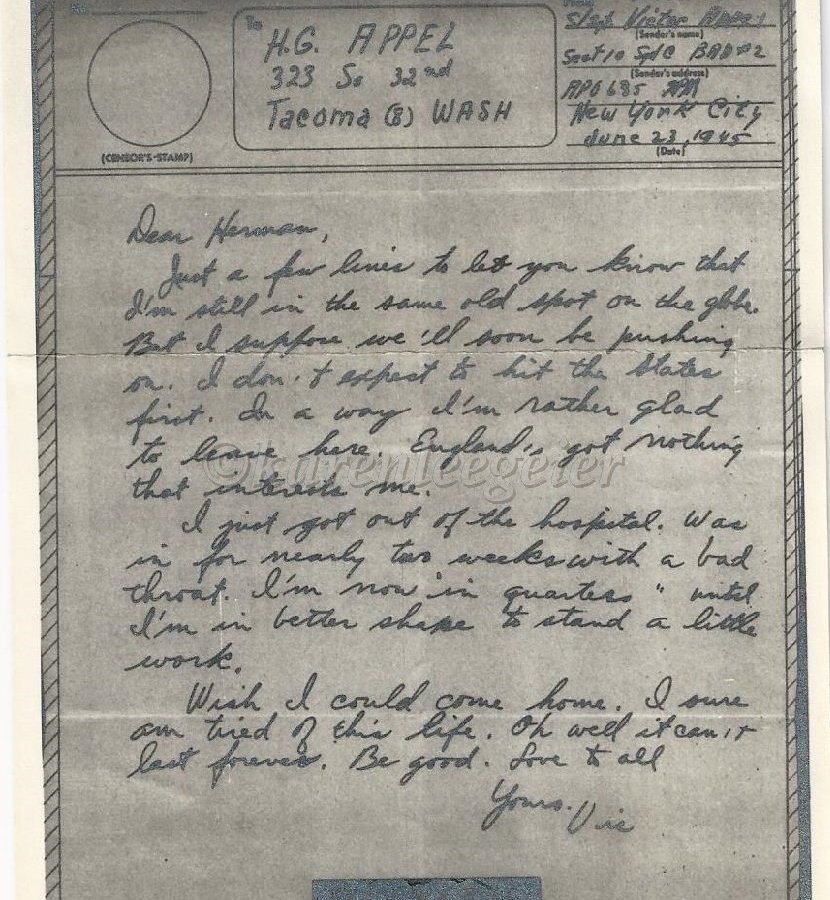 To
H.G. APPEL
323 So 32nd
Tacoma (8) WASH
S/Sgt Victor Appel
(Sender's name)
BAD #2
(Sender's address)
APO 635
New York City
June 23, 1945
(Date)
(CENSOR'S STAMP)
Dear Herman,
Just a few lines to let you know that
I'm still in the same old spot on the globe.
But I suppose we'll soon be pushing
on. I don't expect to hit the States
first. In a way I'm rather glad
to leave here. England's got nothing
that interests me.
©karenleegeier
I just got out of the hospital. Was
in for nearly two weeks with a bad
throat. I'm now "in quarters" until
I'm in better shape to stand a little
work.
Wish I could come home. I sure
am tired of this life. Oh well it can't
last forever. Be good. Love to all
Yours.
Vic